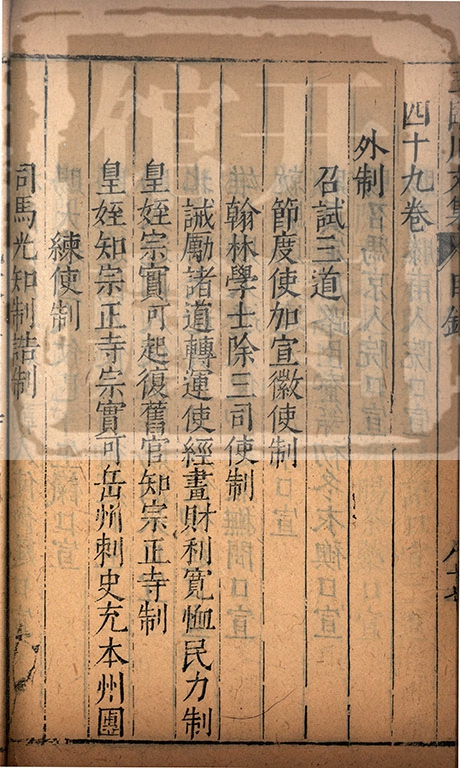 四十九卷
外制
召試三道
節度使加宣徽使制
翰林學士除三司使制
誡勵諸道轉運使經畫財利寬恤民力制
皇姪宗實可起復舊官知宗正寺制
皇姪知宗正寺宗實可岳州刺史充本州團
練使制
司馬光知制誥制